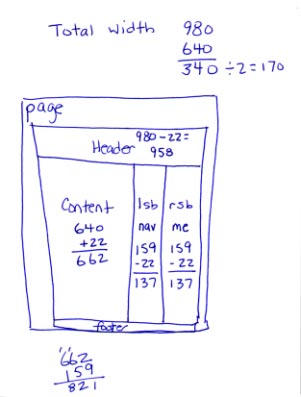 Total width 980
640
340 ÷2=170
page
Header 980-22=
958
Content lsb rsb
640 nav me
+22 159 159
662 -22 -22
137 137
footer
662
159
821